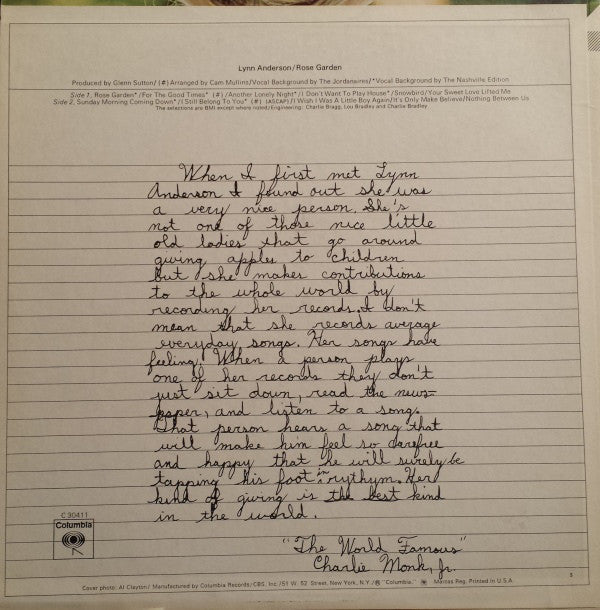 Lynn Anderson/Rose Garden
Produced by Glenn Sutton/(#) Arranged by Cam Mullins/Vocal Background by The Jordanaires/*Vocal Background by The Nashville Edition
Side 1, Rose Garden*/For The Good Times* (#)/Another Lonely Night*/I Don't Want To Play House*/Snowbird/Your Sweet Love Lifted Me
Side 2, Sunday Morning Coming Down*/I Still Belong To You* (#) (ASCAP)/I Wish I Was A Little Boy Again/It's Only Make Believe/Nothing Between Us
The selections are BMI except where noted/Engineering: Charlie Bragg, Lou Bradley and Charlie Bradley
When I first met Lynn
Anderson I found out she was
a very nice person. She's
not one of those nice little
old ladies that go around
giving apples to children
but she makes contributions
to the whole world by
recording her records. I don't
mean that she records average
everyday songs. Her songs have
feeling. When a person plays
one of her records they don't
just sit down, read the news-
paper, and listen to a song.
That person hears a song that
will make him feel so carefree
and happy that he will surely be
tapping his foot in rythym. Her
kind of giving is the best kind
in the world.
"The World Famous"
Charlie Monk, Jr.
C 30411
Columbia
Cover photo: Al Clayton/Manufactured by Columbia Records/CBS, Inc./51 W. 52 Street, New York, N.Y./® "Columbia," Marcas Reg. Printed in U.S.A.